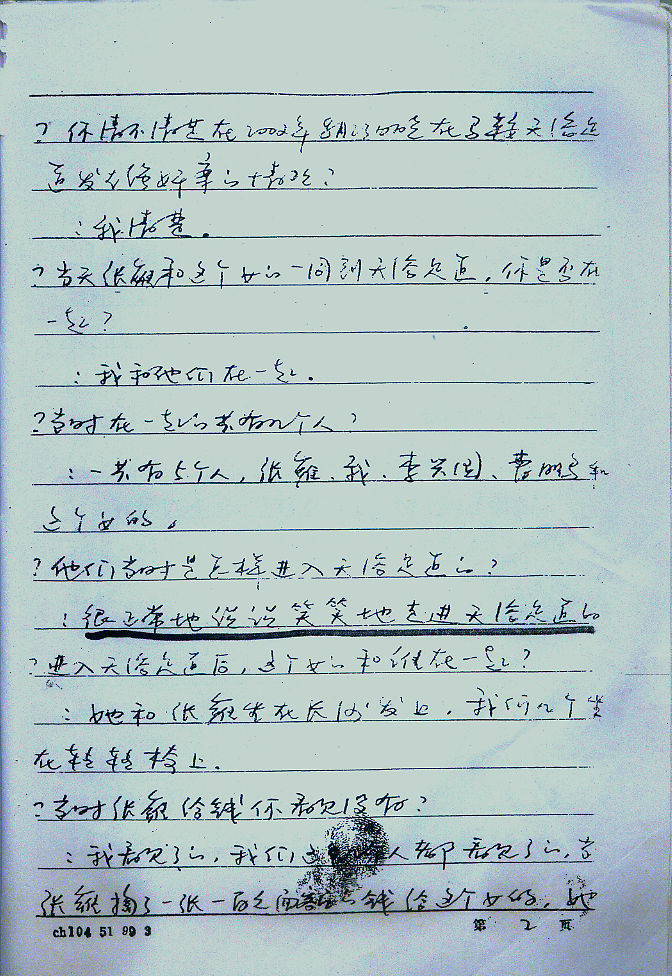 ? 你清不清楚在2002年8月23日晚在马鞍天伦足
道发生强奸案的情况?
:我清楚。
?当天张巍和这个女的一同到天伦足道,你是否在
一起?
:我和他们在一起。
?当时在一起的共有几个人?
:一共有5个人,张巍、我、李兴国、曹明
这个女的。
?他们当时是怎样进入天伦足道的?
:很正常地说说笑笑地走进天伦足道的
?进入天伦足道后,这个女的和谁在一起?
:她和张巍坐在长沙发上,我们几个坐
在椅上。
?当时张巍给钱你看见没有?
:我看见了的,我们这 人都看见了的,当
张巍掏了一张一百元面 的钱给这个女的,她
ch104 51 99 3 第 2 页